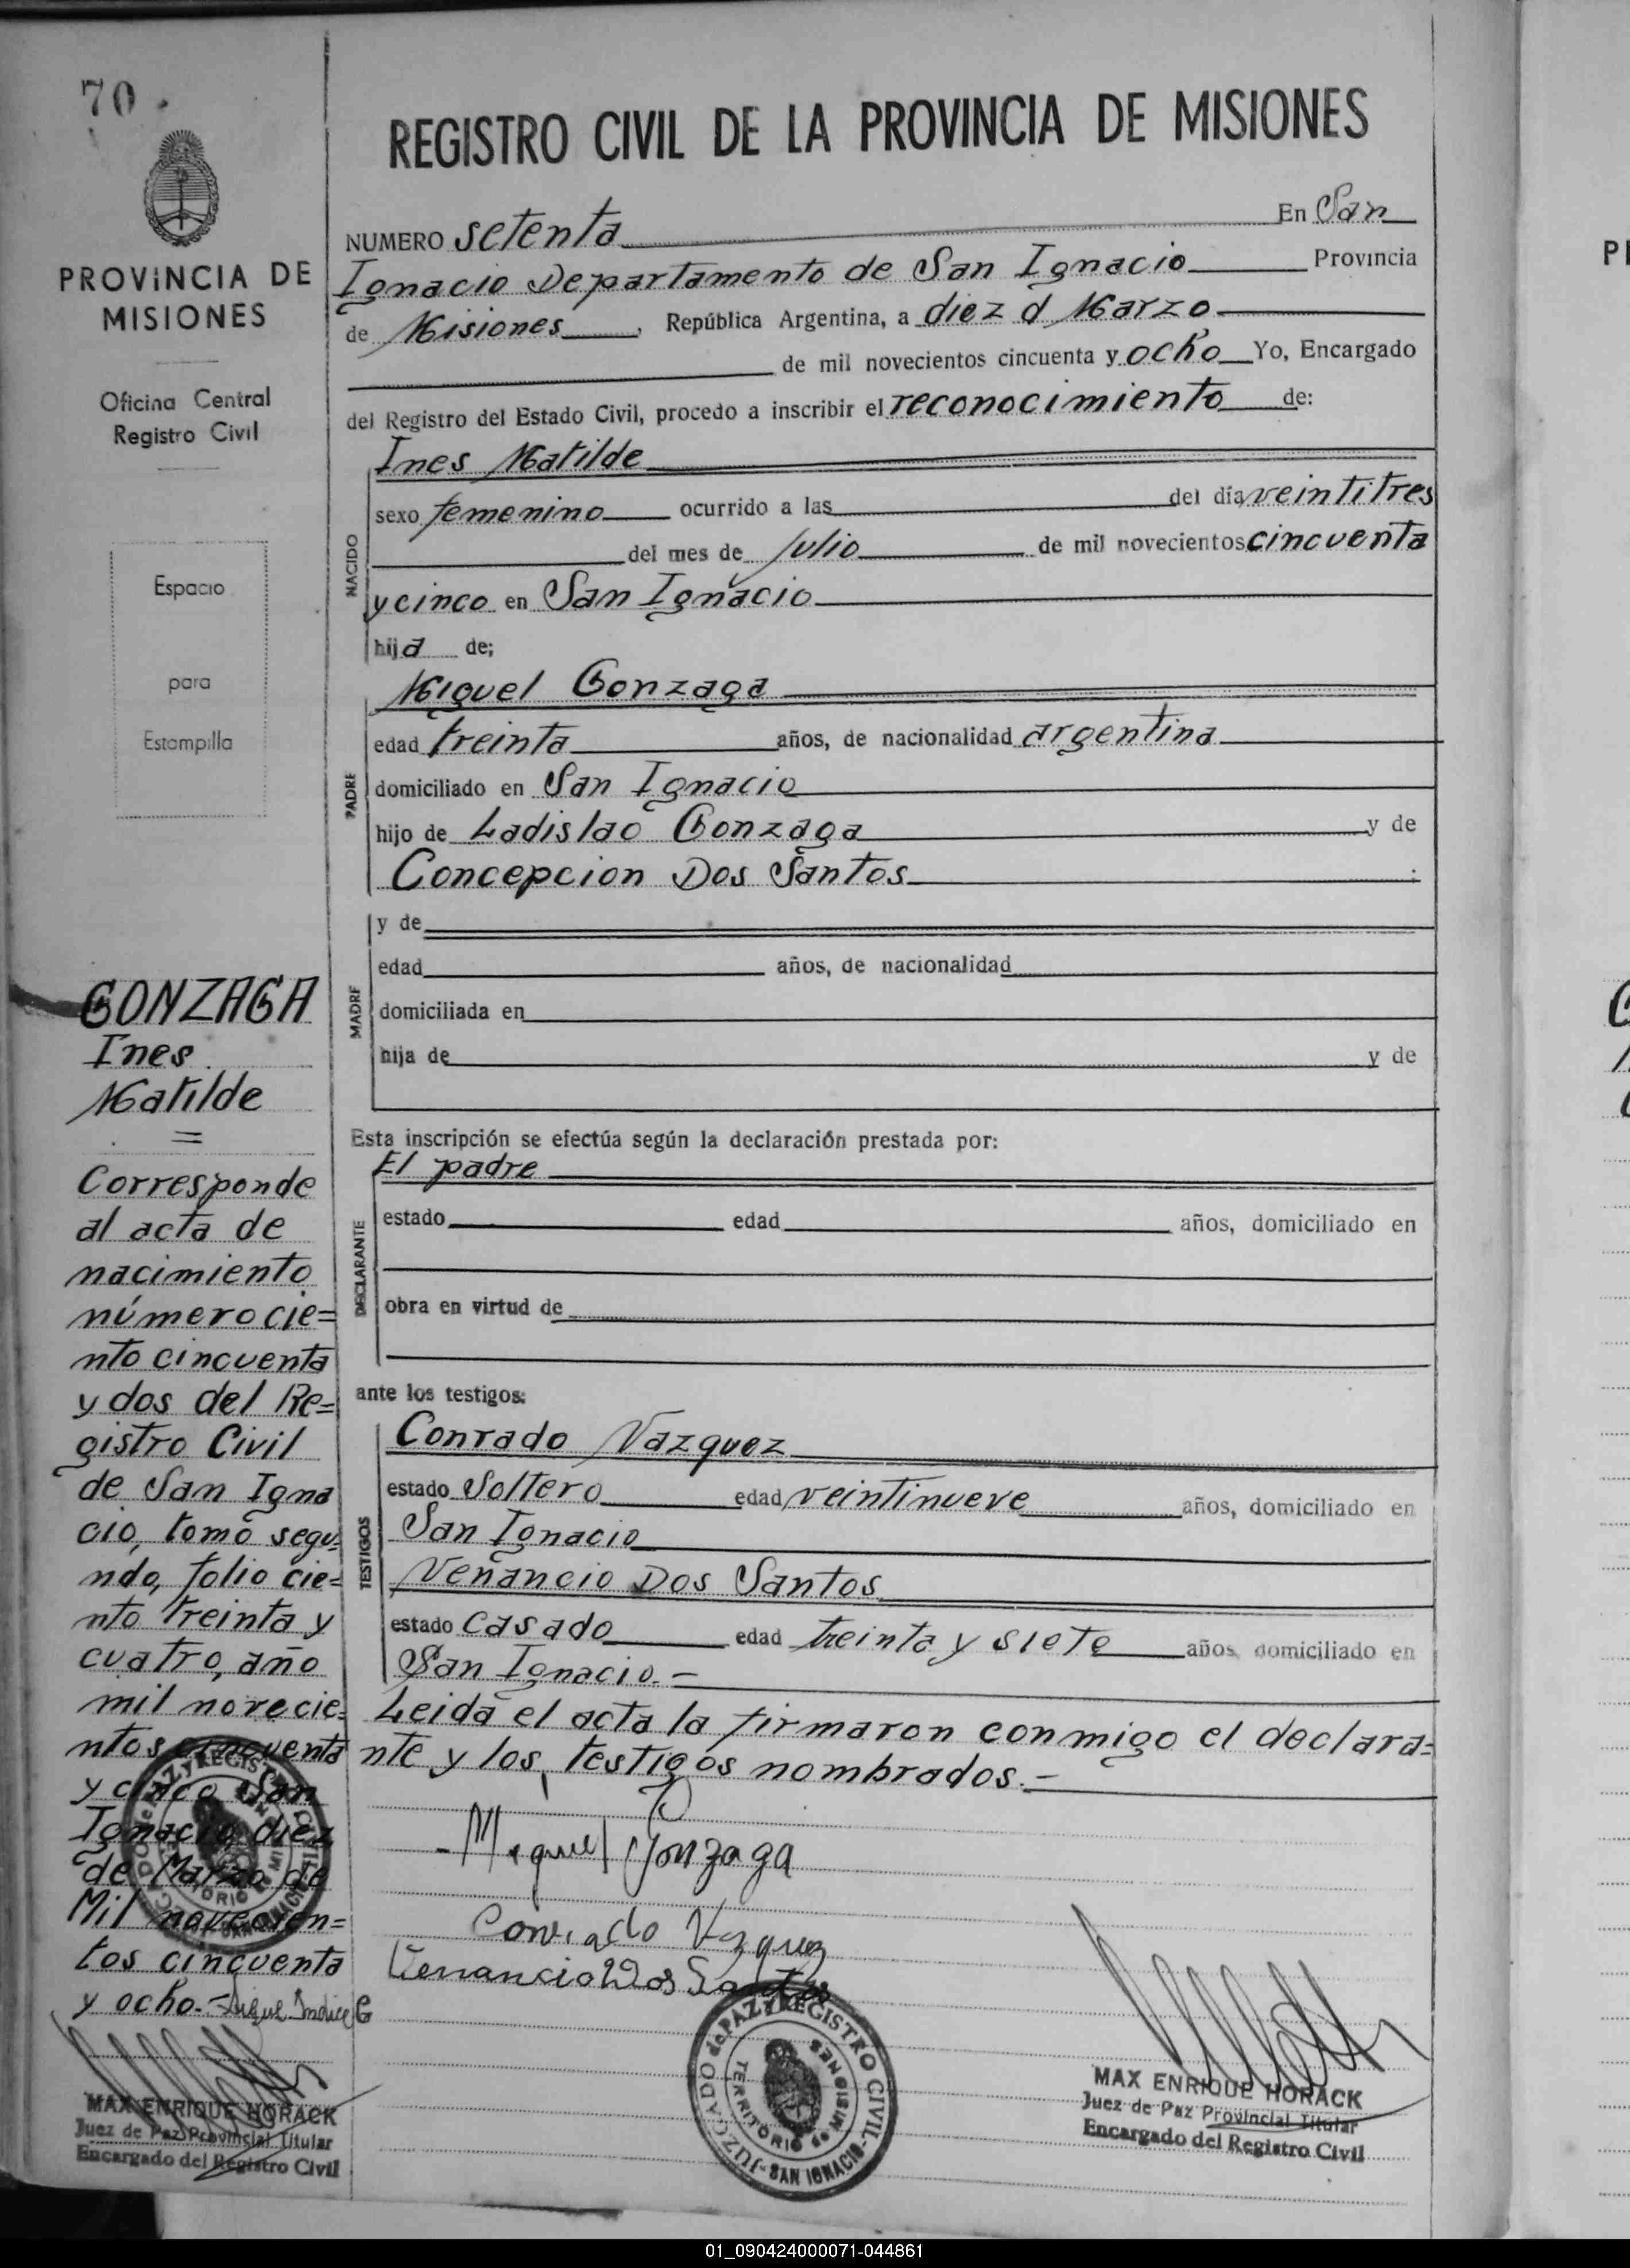 70.
PROVINCIA DE
MISIONES
Oficina Central
Registro Civil
Espacio
para
Estampilla
GONZAGA
Ines
Matilde
=
Corresponde
al acta de
nacimiento
número cie=
nto cincuenta
y dos del Re=
gistro Civil
de San Igna
cio, tomo segu=
ndo, folio cie=
nto treinta y
cuatro, año
mil novecie=
ntos cincuenta
y cinco San
Ignacio, diez
de Marzo de
Mil novecien=
tos cincuenta
y ocho.- Sigue Indice G
MAX ENRIQUE HORACK
Juez de Paz Provincial Titular
Encargado del Registro Civil
REGISTRO CIVIL DE LA PROVINCIA DE MISIONES
NUMERO setenta En San
Ignacio Departamento de San Ignacio Provincia
de Misiones, República Argentina, a diez d Marzo
de mil novecientos cincuenta y ocho Yo, Encargado
del Registro del Estado Civil, procedo a inscribir el reconocimiento de:
Ines Matilde
sexo femenino ocurrido a las del día veintitres
del mes de Julio de mil novecientos cincuenta
y cinco en San Ignacio
NACIDO
hija de;
Miguel Gonzaga
edad treinta años, de nacionalidad argentina
domiciliado en San Ignacio
PADRE
hijo de Ladislao Gonzaga y de
Concepcion Dos Santos ;
y de
edad años, de nacionalidad
domiciliada en
MADRE
hija de y de
Esta inscripción se efectúa según la declaración prestada por:
El padre
estado edad años, domiciliado en
DECLARANTE
obra en virtud de
ante los testigos:
Conrado Vazquez
estado Soltero edad veintinueve años, domiciliado en
San Ignacio
TESTIGOS
Venancio Dos Santos
estado casado edad treinta y siete años, domiciliado en
San Ignacio.-
Leida el acta la firmaron conmigo el declara=
nte y los testigos nombrados.-
Miguel Gonzaga
Conrado Vazquez
Venancio Dos Santos
JUZGADO de PAZ y REGISTRO CIVIL
TERRITORIO de MISIONES
-SAN IGNACIO-
MAX ENRIQUE HORACK
Juez de Paz Provincial Titular
Encargado del Registro Civil
01_090424000071-044861